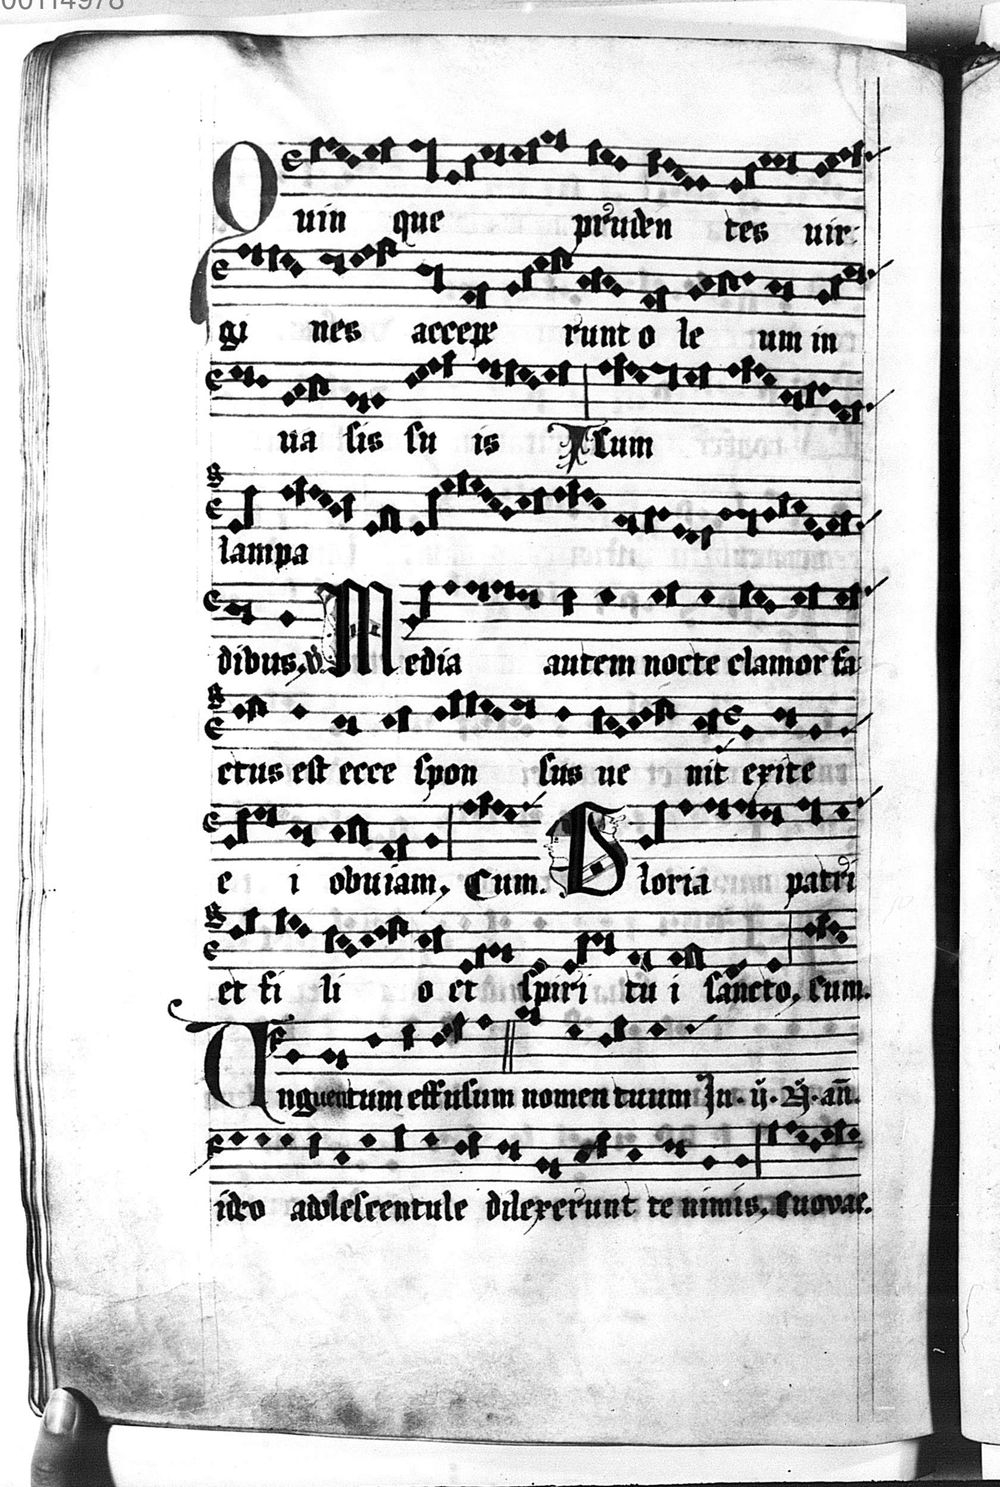 00114978
Quin que pruden tes uir
gi nes accepe runt o le um in
ua sis su is Cum
lampa
dibus. V. Media autem nocte clamor fa
ctus est ecce spon sus ue nit exite
e i obuiam. Cum. Gloria patri
et fi li o et spiri tu i sancto. cum.
Unguentum effusum nomen tuum In. ij. añ.
ideo adolescentule dilexerunt te nimis. Euouae.